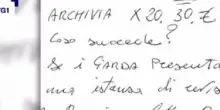 TG1
ARCHIVIA X 20. 30. €
Cosa succede?
Se i GARDA presenta
una istanza di